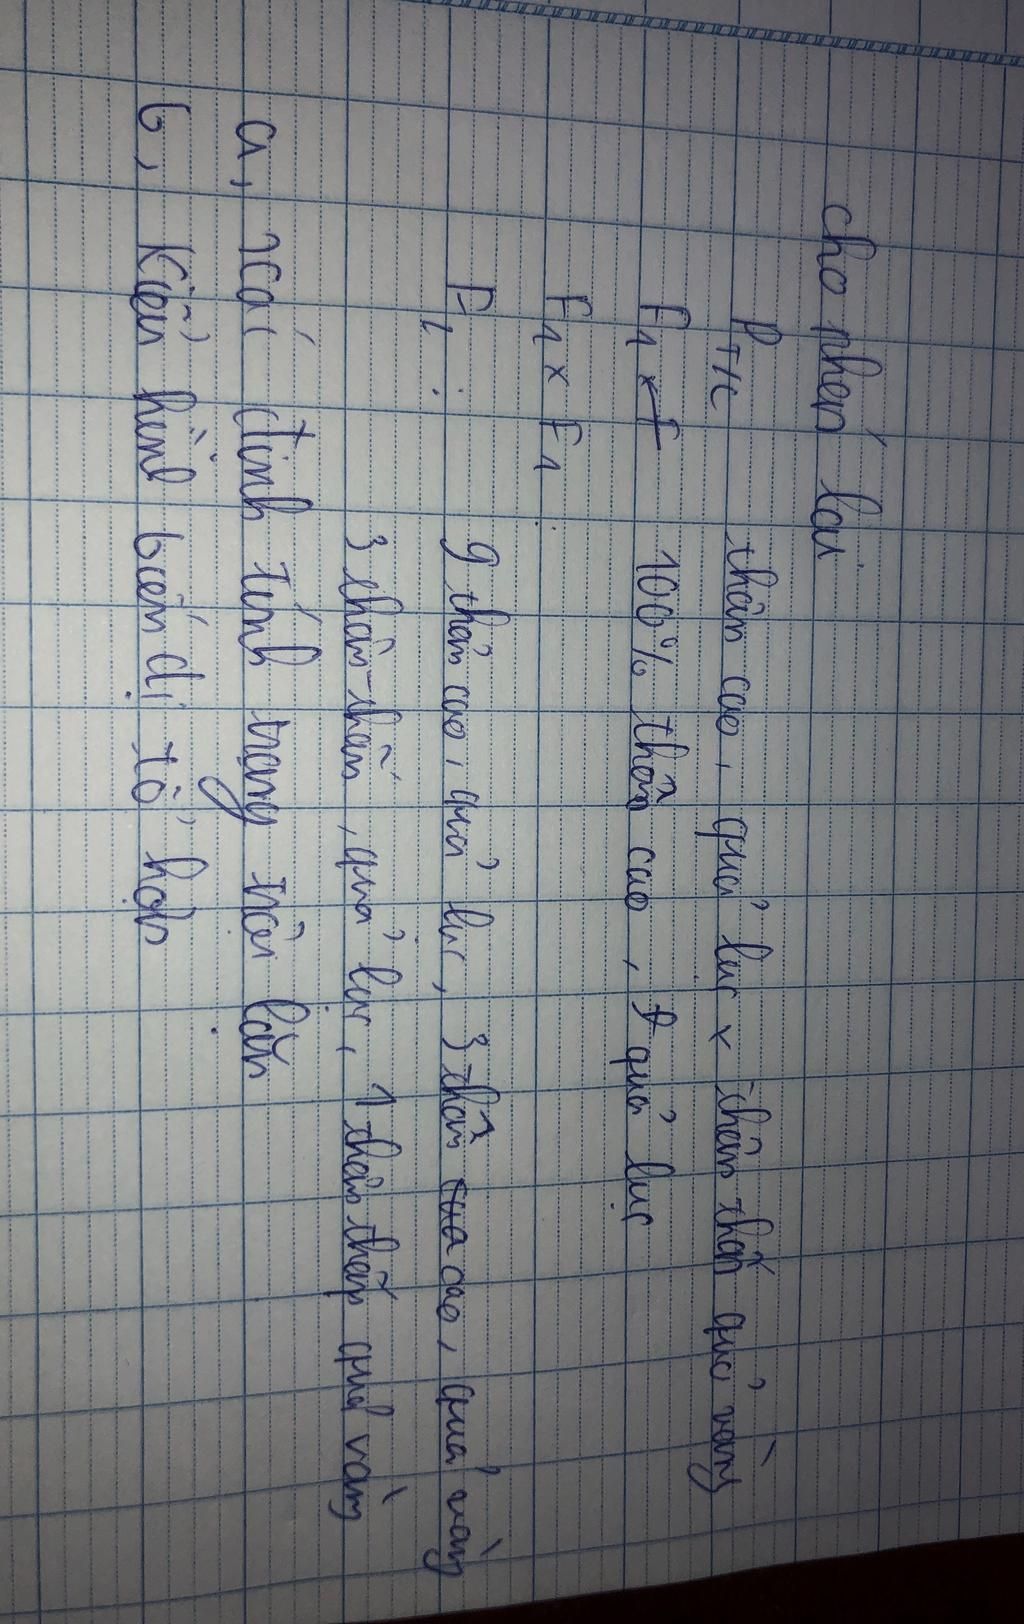 cho phép lai
P T/C thân cao, quả lục x thân thấp quả vàng
F1 100% thân cao, quả lục
F1 x F1
F2: 9 thân cao, quả lục, 3 thân cao, quả vàng
3 thân thấp, quả lục, 1 thân thấp quả vàng
a, xác định tính trạng trội lặn
b, Kiểu hình biến dị tổ hợp